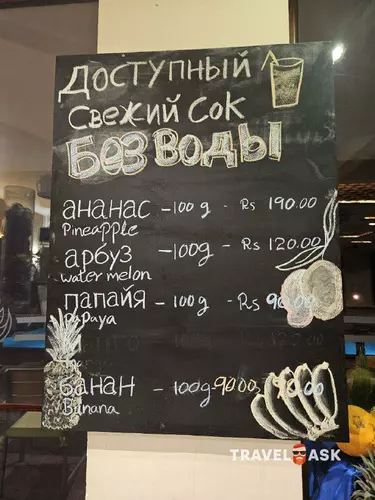 Доступный
Свежий Сок
Без воды
ананас - 100 g - Rs 190.00
Pineapple
арбуз - 100g - Rs 120.00
water melon
папайя - 100 g - Rs 90.00
Papaya
банан - 100g - 90.00
Banana
TRAVEL ASK